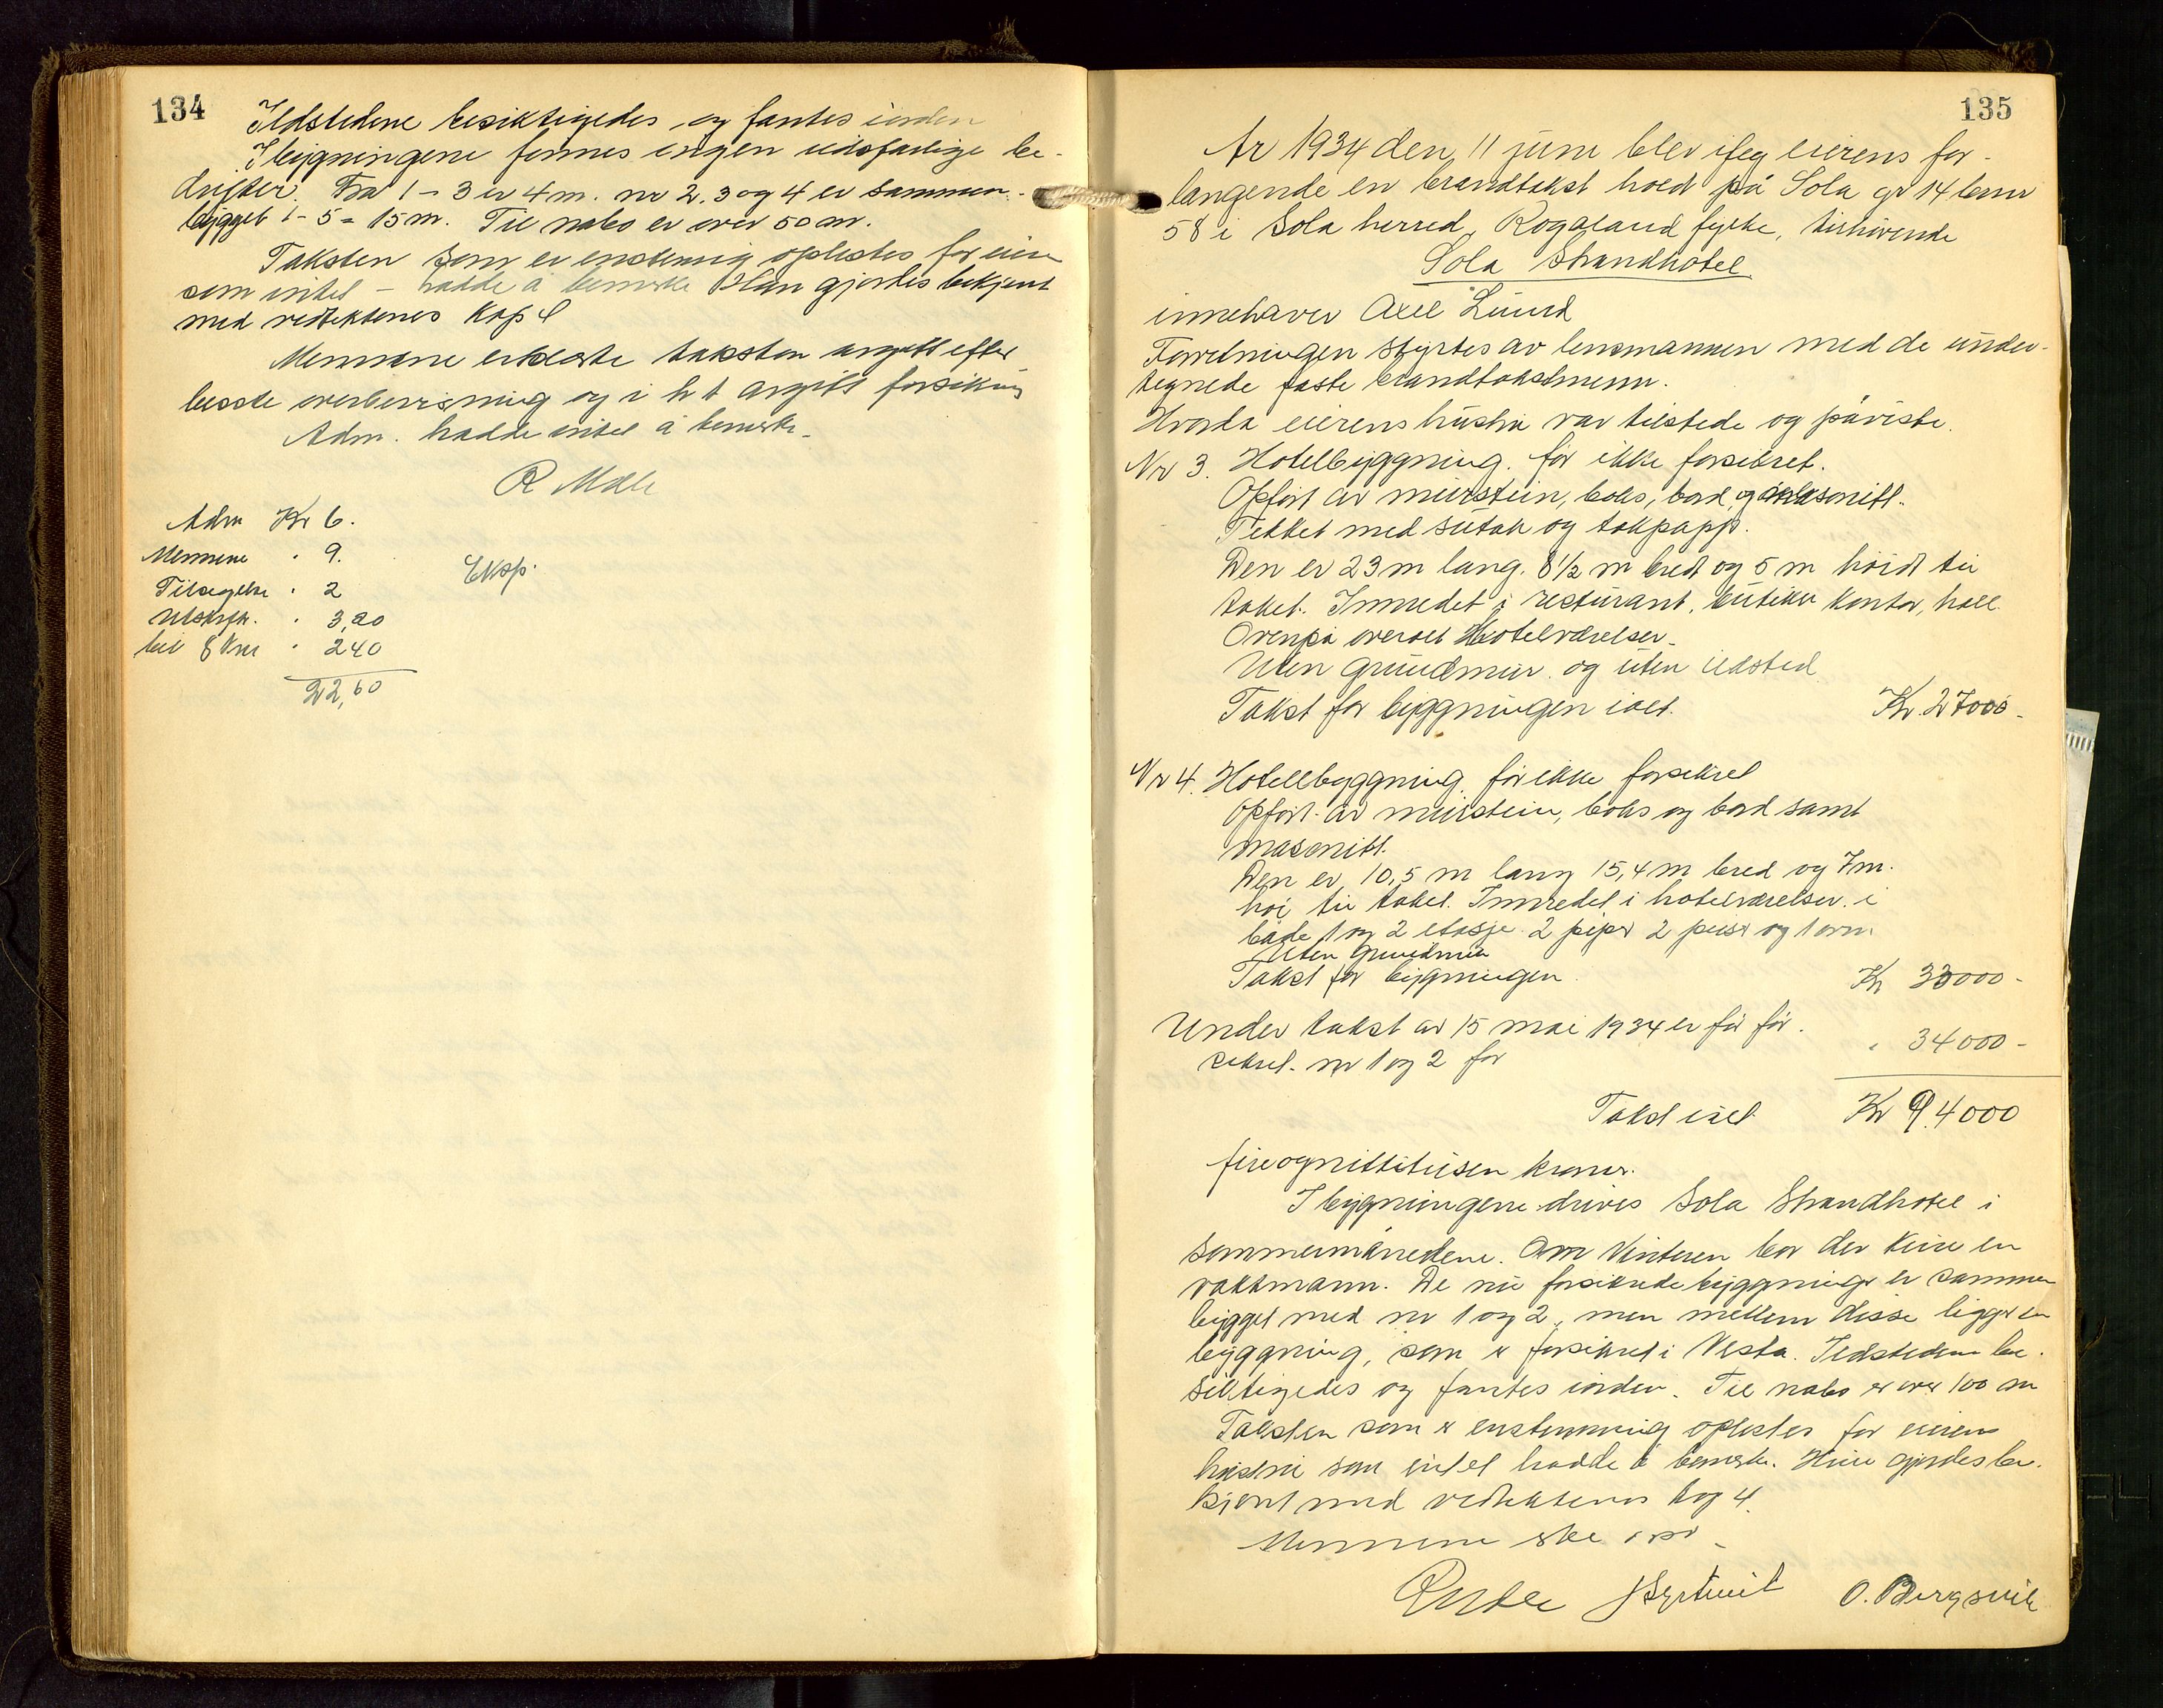 134
Ildstedene besiktigedes og fantes iorden
I bygningene finnes ingen ildsfarlige be-
drifter. Fra 1 – 3 er 4 m. nr 2. 3 og 4 er sammen-
bygget 1 – 5 = 15 m. Til nabo er over 50 m.
Taksten som er enstemmig oplestes for eier
som intet – hadde å bemerke Han gjordes bekjent
med vedtektenes Kap 4
Mennene erklærte taksten avgitt efter
beste overbevisning og i h t avgitt forsikring
Adm. hadde intet å bemerke.
Adm Kr 6.
Mennene " 9.
Tilsigelse " 2
Utskrft. " 3,20
bil 8 km " 2 40
22,60
Eksp.
135
År 1934 den 11 juni blev ifølg eierens for-
langende en brandtakst holdt på Sola gr 14 bnr
58 i Sola herred, Rogaland fylke, tilhørende
Sola Strandhotel
innehaver Axel Lund
Forretningen styrtes av lensmannen med de under-
tegnede faste brandtakstmenn.
Hvorda eierens hustru var tilstede og påviste.
Nr 3. Hotelbyggning. før ikke forsikret.
Opført av murstein, boks, bord, og masonitt.
Tekket med sutak og takpapp.
Den er 23 m lang. 8 1/2 m bred og 5 m høidt til
taket. Innredet i resturant, butikk kontor, hall
Ovenpå overalt Hotelværelser.
Uten grundmur og uten ildsted
Takst for byggningen ialt. Kr. 27000-
Nr 4. Hotellbyggning før ikke forsikret
Opført av murstein, boks og bord samt
masonitt.
Den er 10,5 m lang 15,4 m bred og 7 m.
høi til taket. Innredet i hotelværelser i
både 1 og 2 etasje. 2 piper 2 peiser og 1 ovn
Uten grundmur
Takst for bygningen Kr 33000-
Under takst av 15 mai 1934 er før for-
sikret. nr 1 og 2 for " 34000-
Takst ialt Kr 94000
fireognittitusen kroner.
I bygningene drives Sola Strandhotel i
Sommermånedene. Om Vinteren bor der kun en
vaktmann. De nu forsikrede byggninger er sammen
bygget med nr 1 og 2, men mellem disse ligger en
byggning, som er forsikret i Vesta. Ildstedene be-
siktigedes og fantes iorden. Til nabo er over 100 m
Taksten som er enstemmig oplestes for eierens
hustru som intet hadde å bemerke. Hun gjordes be-
kjent med vedtektenes kap 4.
Mennene
O. Bergsvik